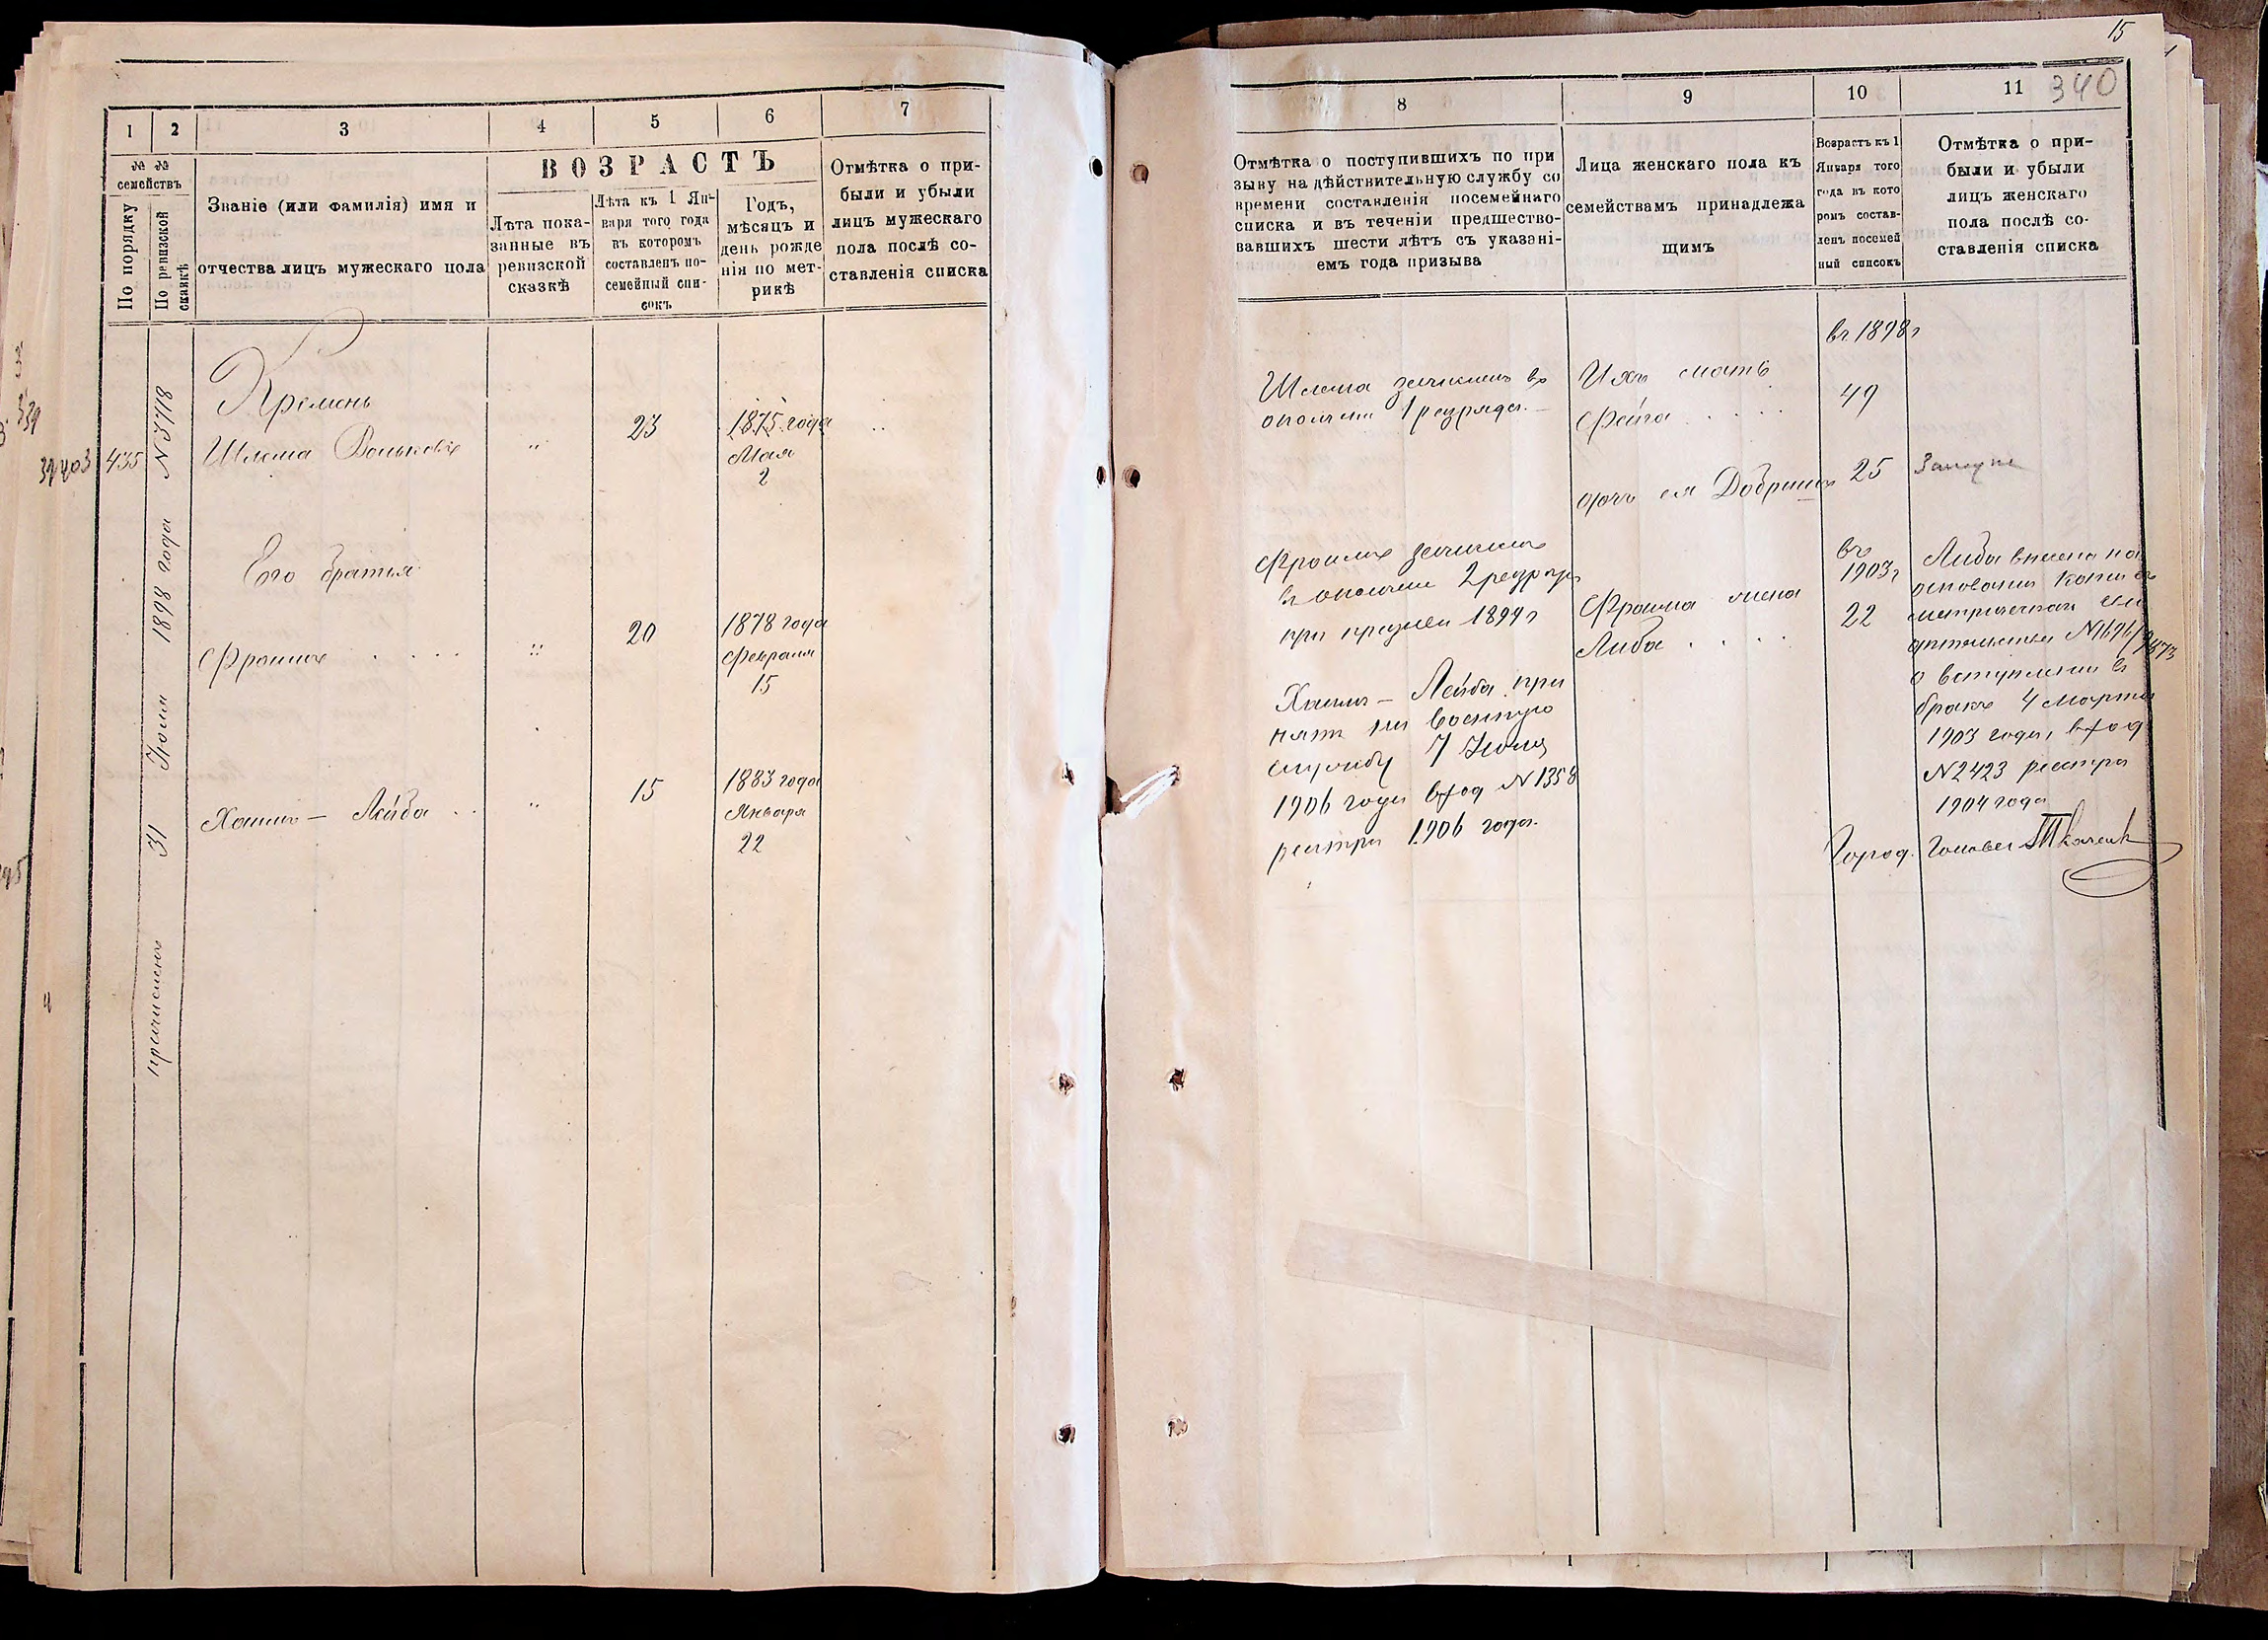 1
2
3
4
5
6
7
№ №
семействъ
По порядку
По ревизской
сказкѣ
Званіе (или фамилія) имя и
отчества лицъ мужескаго пола
ВОЗРАСТЪ
Лѣта пока-
занные въ
ревизской
сказкѣ
Лѣта къ 1 Ян-
варя того года
въ которомъ
составленъ по-
семейный спи-
сокъ
Годъ,
мѣсяцъ и
день рожде
нія по мет-
рикѣ
Отмѣтка о при-
были и убыли
лицъ мужескаго
пола послѣ со-
ставленія списка
339
403
435
причисленъ 31 Іюля 1898 года №3718
Кремень
Шлема Волькович
"
23
1875 года
Мая
2
Его братья
Фроимъ
"
20
1878 года
Февраля
15
Хаимъ - Лейба
"
15
1883 года
Января
22
15
340
8
9
10
11
Отмѣтка о поступившихъ по при
зыву на дѣйствительную службу со
времени составленія посемейнаго
списка и въ теченіи предшество-
вавшихъ шести лѣтъ съ указані-
емъ года призыва
Лица женскаго пола къ
семействамъ принадлежа
щимъ
Возрастъ къ 1
Января того
года въ кото
ромъ состав-
ленъ посемей
ный списокъ
Отмѣтка о при-
были и убыли
лицъ женскаго
пола послѣ со-
ставленія списка
въ 1898г
Шлема зачисленъ въ
ополчен 1 разряда.
Ихъ мать
Фейга
49
дочь ея Добрыш
25
Замуж
Фроимъ зачисленъ
въ ополчен 2 разряда
при призыве 1899г
Фроима жена
Либа
въ
1903г
22
Либа внесена на
основании копии с
метрической сви
детельства №1696/
о вступлении въ
бракъ 4 Марта
1903 года, вход
№2423 реестра
1904 года
Хаимъ - Лейба при
нятъ на военную
службу 7 Іюля
1906 года вход №1358
реестра 1906 года.
Город. Голова